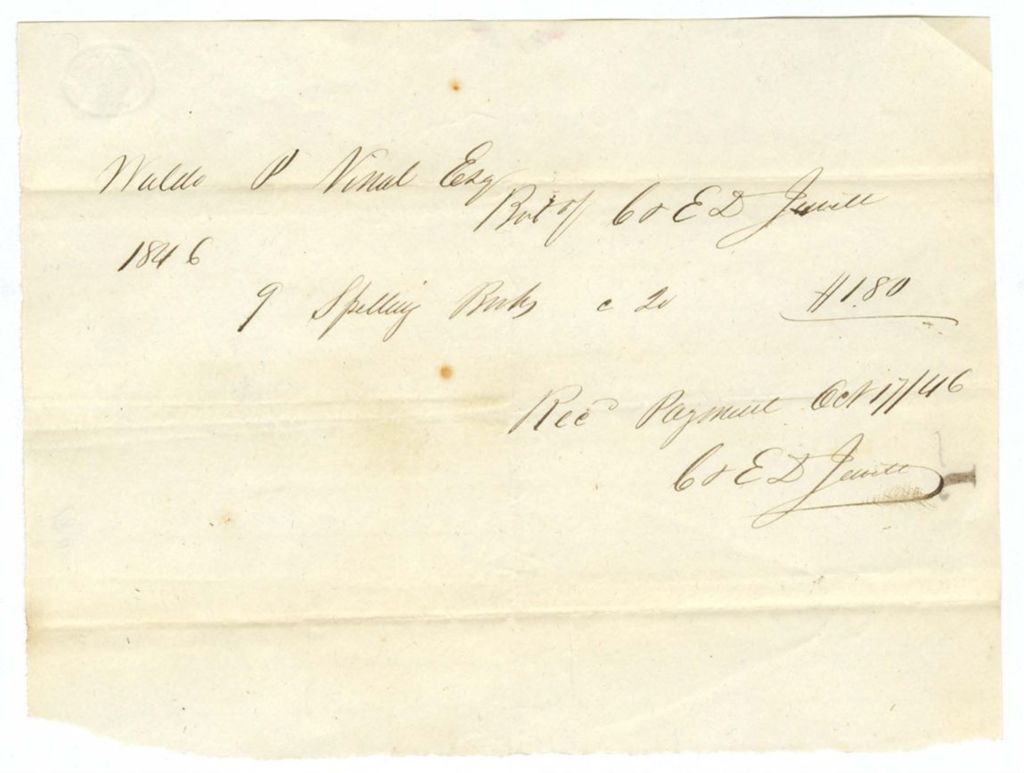 Waldo P Vinal Esq
Bot of C & E D Jewett
1846
9 Spelling Books c 20 $1.80
Recd Payment Oct 17/46
C & E D Jewett